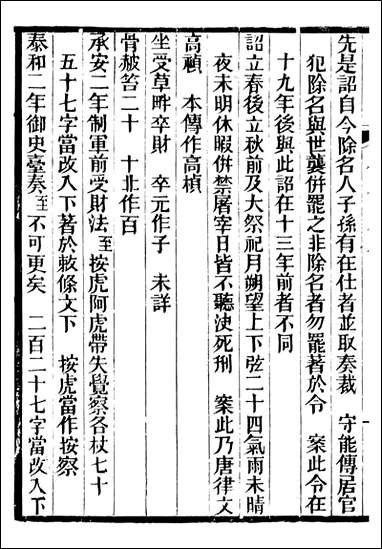 先是詔自今除名人子孫有在仕者並取奏裁　守能傳居官
犯除名與世襲併罷之非除名者勿罷著於令　案此令在
十九年後與此詔在十三年前者不同
詔立春後立秋前及大祭祀月朔望上下弦二十四氣雨未晴
夜未明休暇併禁屠宰日皆不聽決死刑　案此乃唐律文
高禎　本傳作高楨
坐受草畔卒財　卒元作子　未詳
骨赧笞二十　十北作百
承安二年制軍前受財法至按虎阿虎帶失覺察各杖七十
五十七字當改入下著於敕條文下　按虎當作按察
泰和二年御史臺奏至不可更矣　二百二十七字當改入下